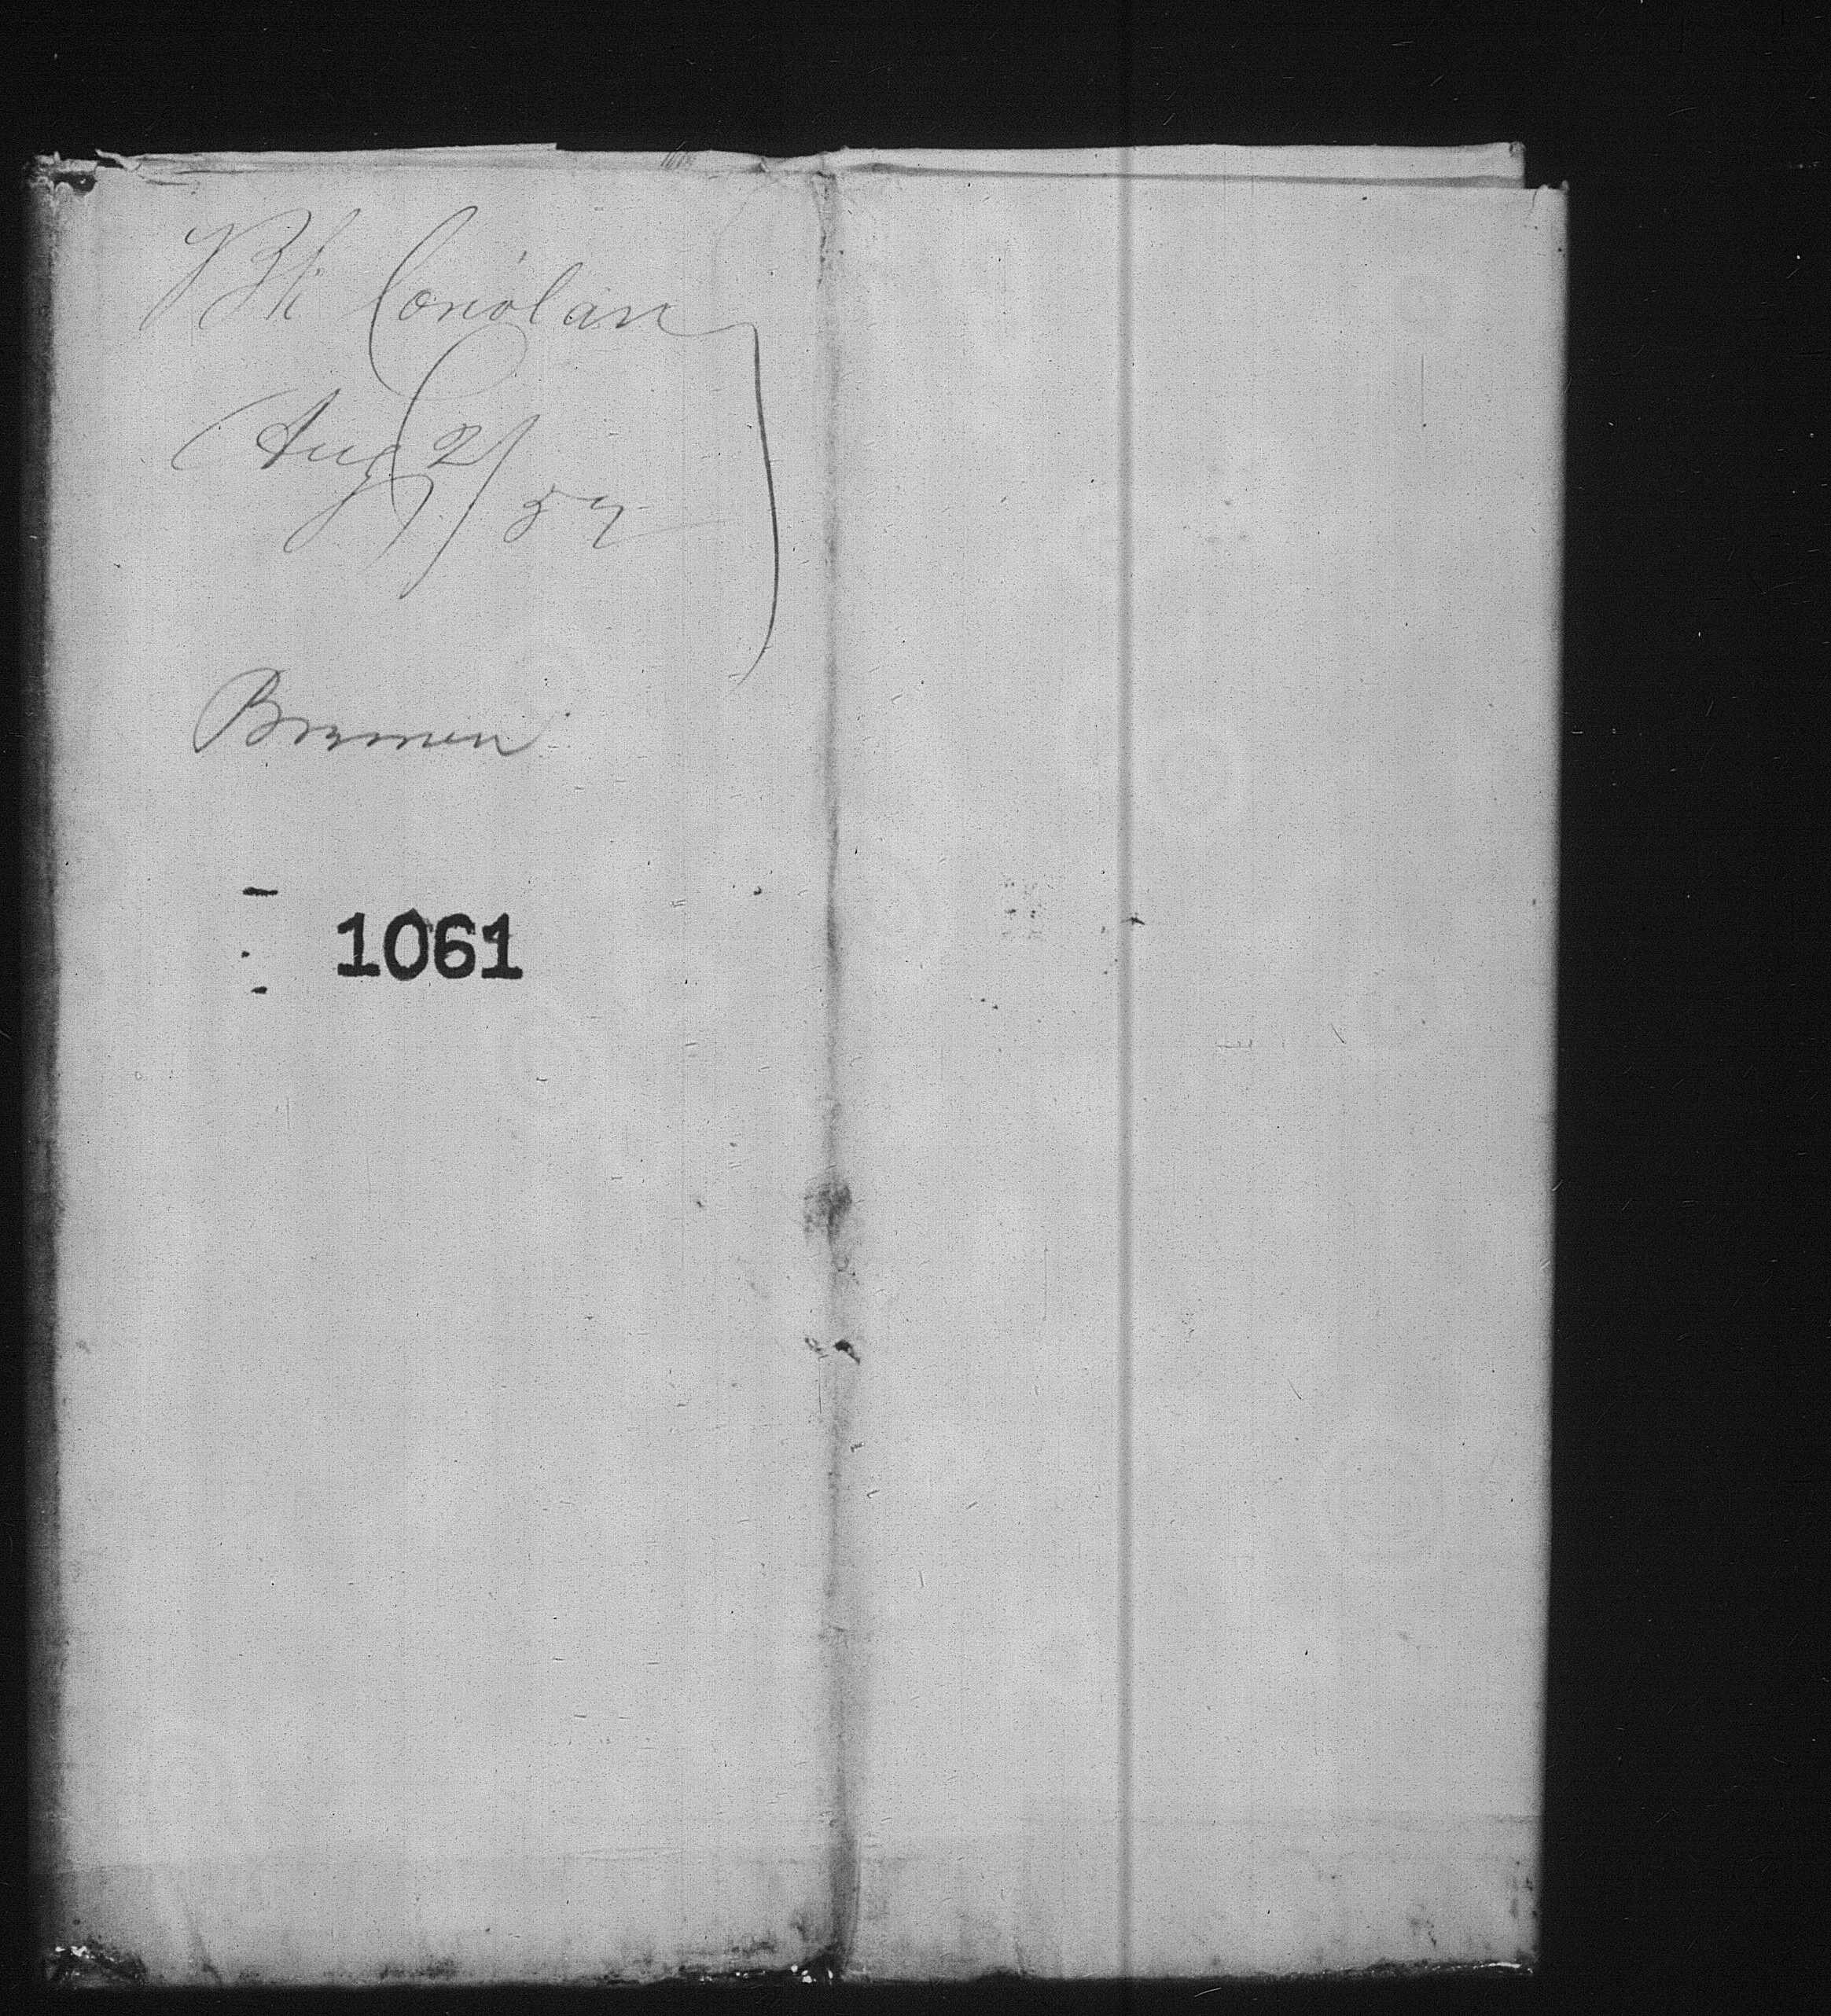 Bk Coriolan
Aug 21
/57
Bremen
1061